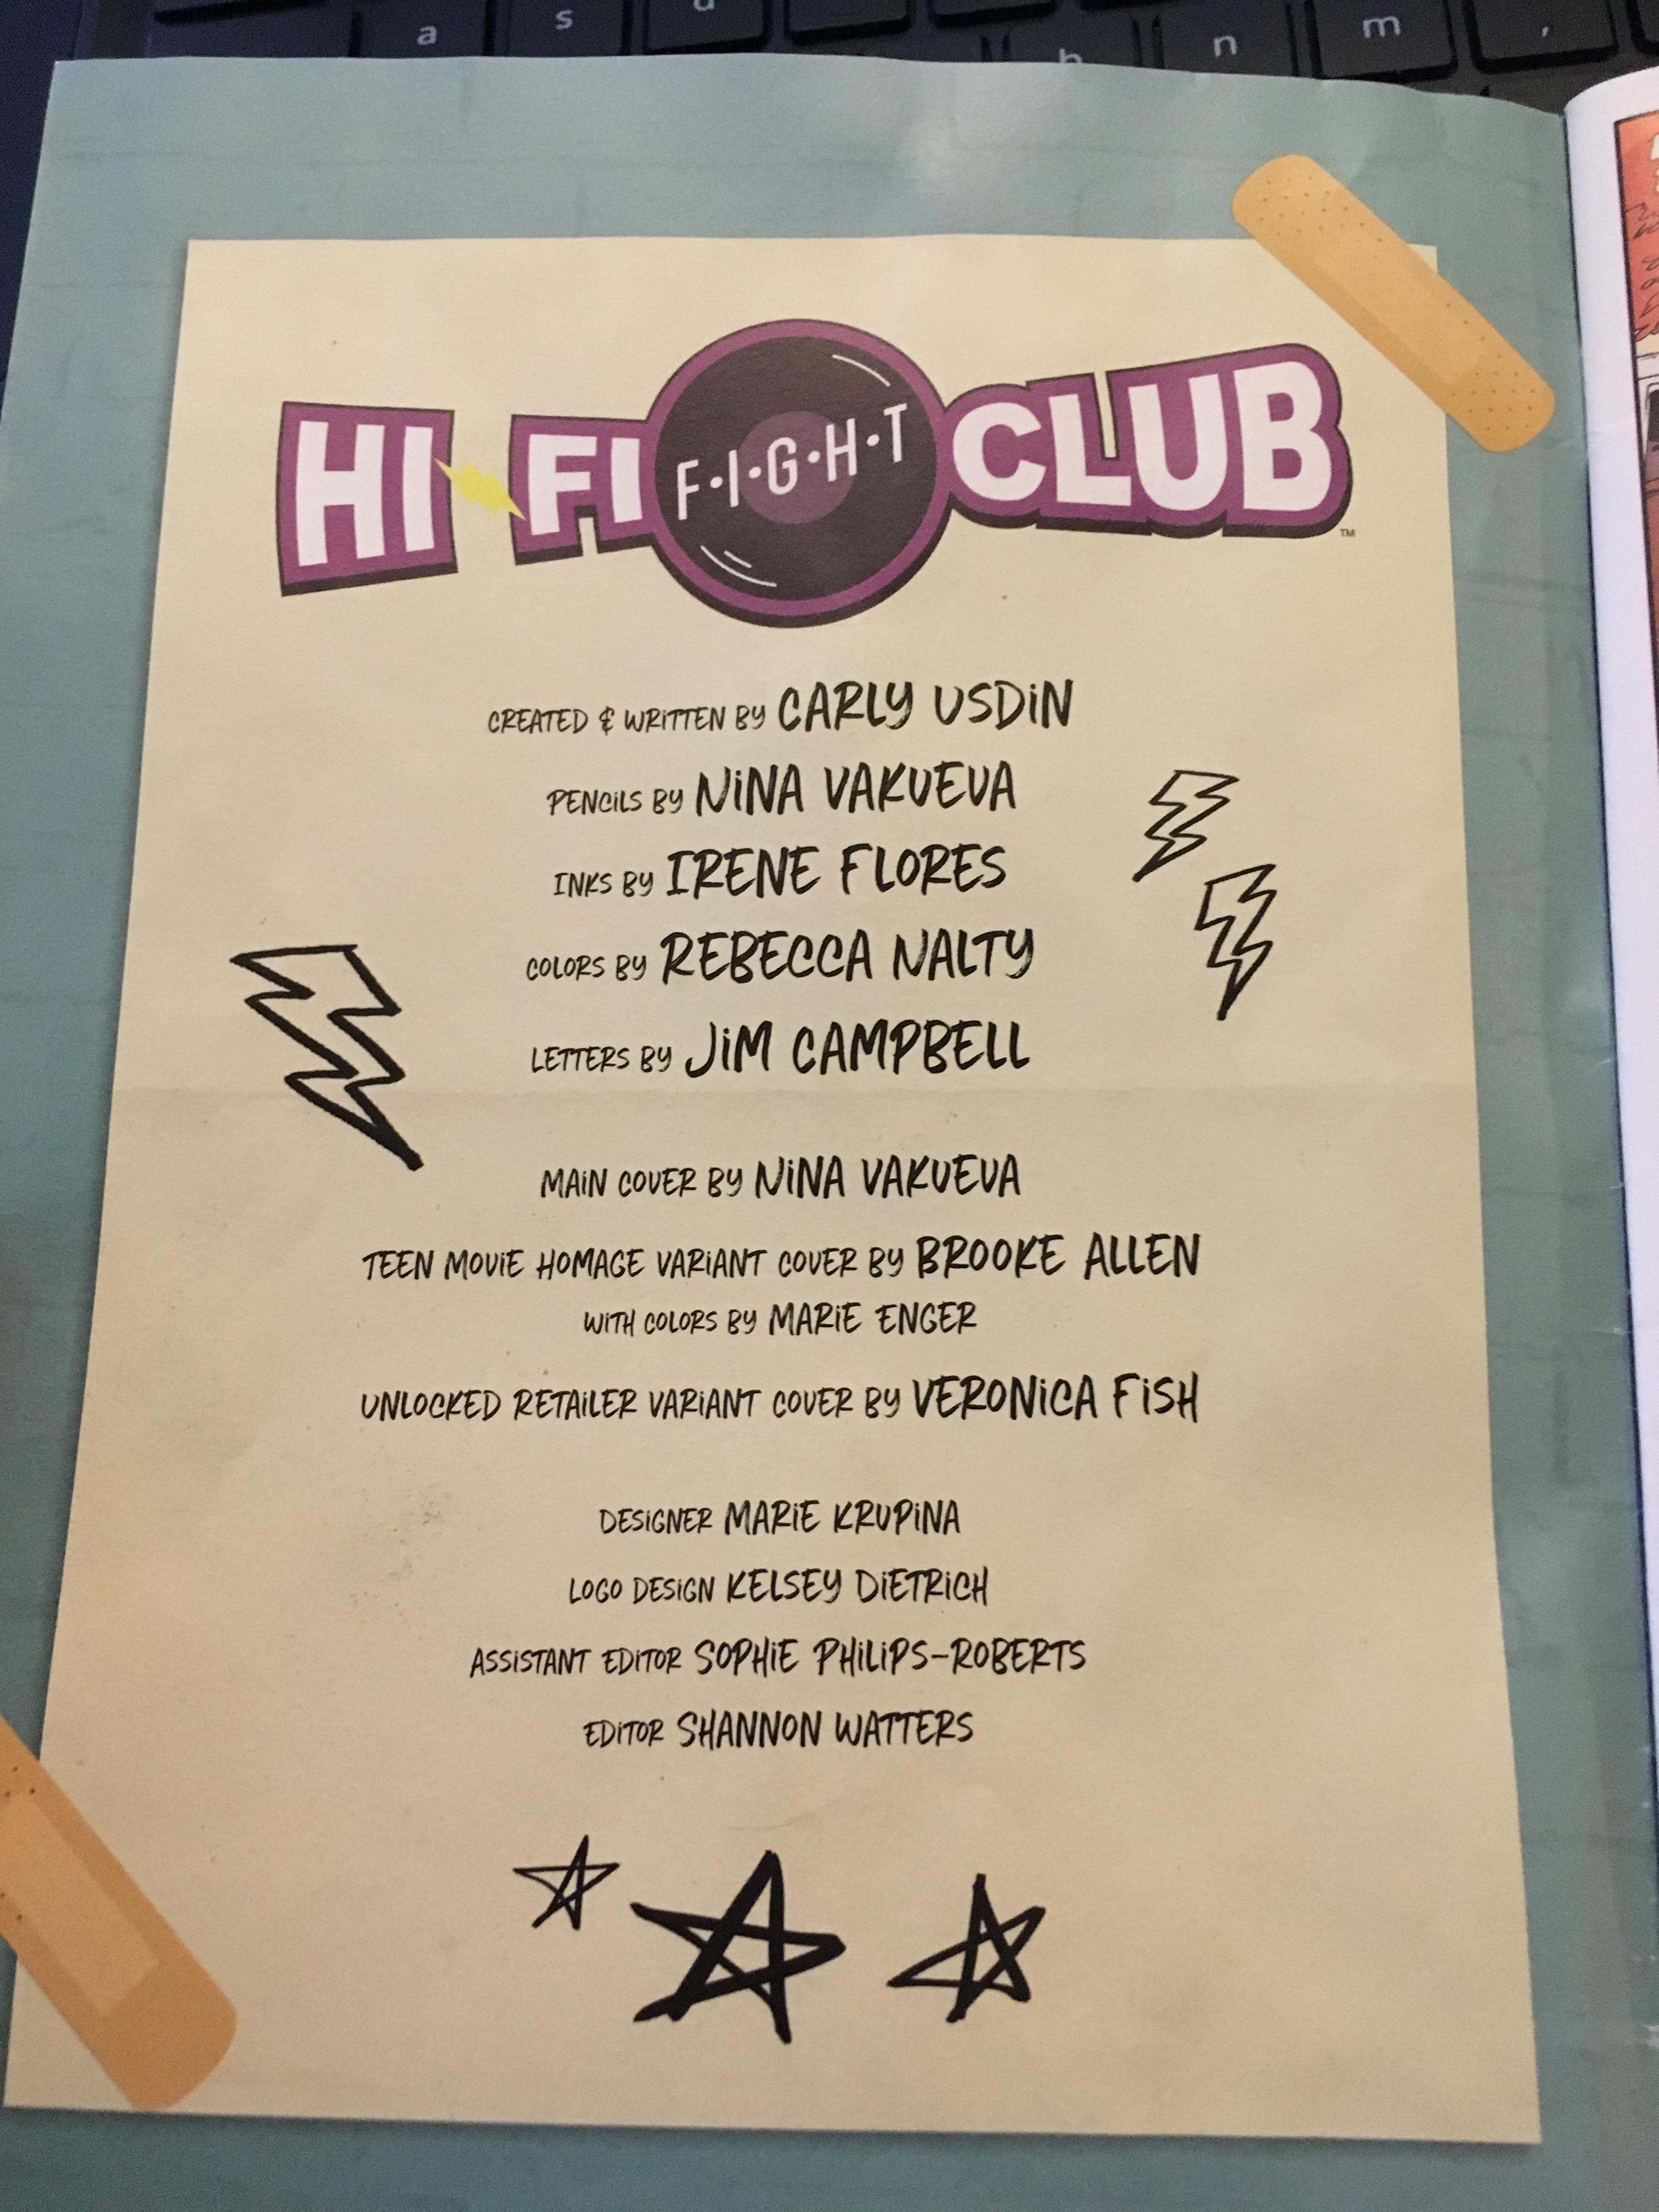 a s d b n m ,
HI FI F·I·G·H·T CLUB™
CREATED & WRITTEN BY CARLY USDIN
PENCILS BY NINA VAKUEVA
INKS BY IRENE FLORES
COLORS BY REBECCA NALTY
LETTERS BY JIM CAMPBELL
MAIN COVER BY NINA VAKUEVA
TEEN MOVIE HOMAGE VARIANT COVER BY BROOKE ALLEN
WITH COLORS BY MARIE ENGER
UNLOCKED RETAILER VARIANT COVER BY VERONICA FISH
DESIGNER MARIE KRUPINA
LOGO DESIGN KELSEY DIETRICH
ASSISTANT EDITOR SOPHIE PHILIPS-ROBERTS
EDITOR SHANNON WATTERS